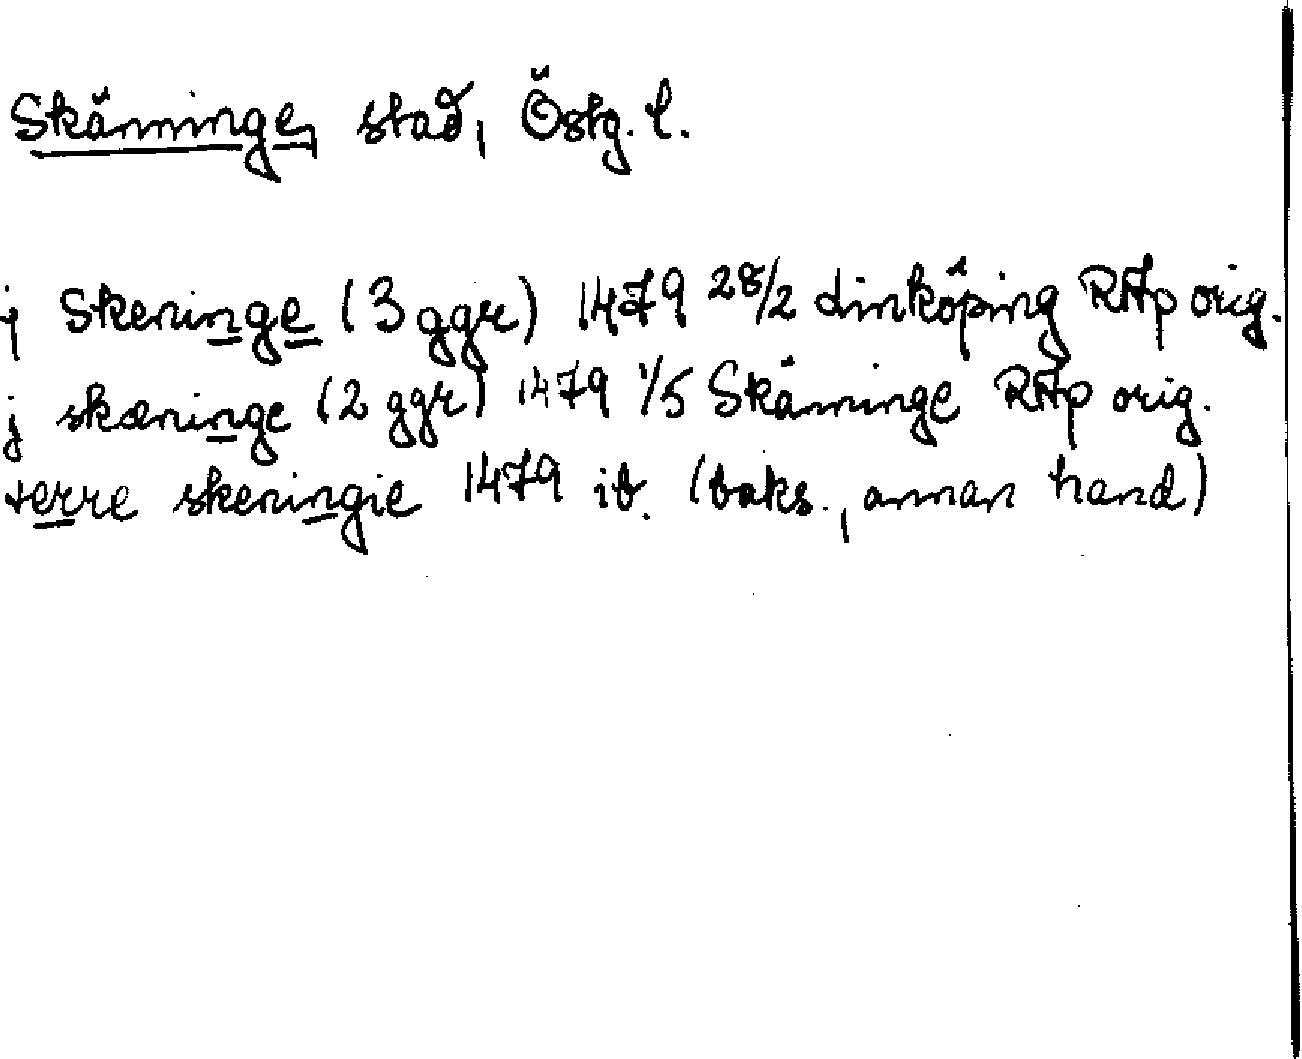 Skänninge, stad, Östg. l.
j Skeninge (3 ggr) 1479 28/2 Linköping RAp orig.
j skæninge (2 ggr) 1479 1/5 Skänninge RAp orig.
terre skeningie 1479 ib. (baks., annan hand)